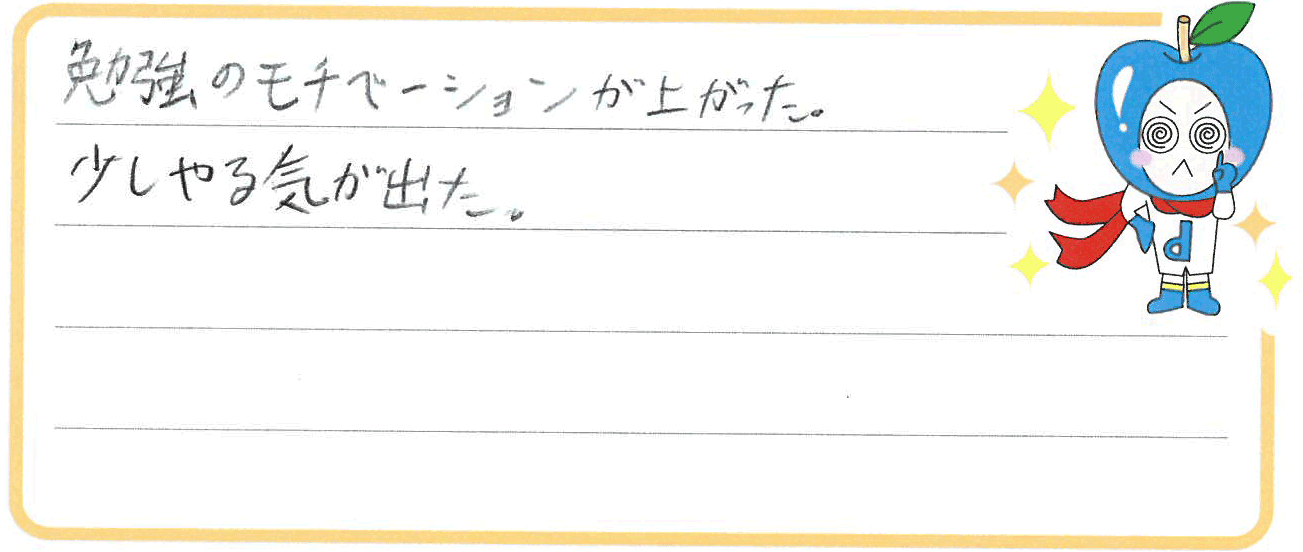 勉強のモチベーションが上がった。
少しやる気が出た。
d